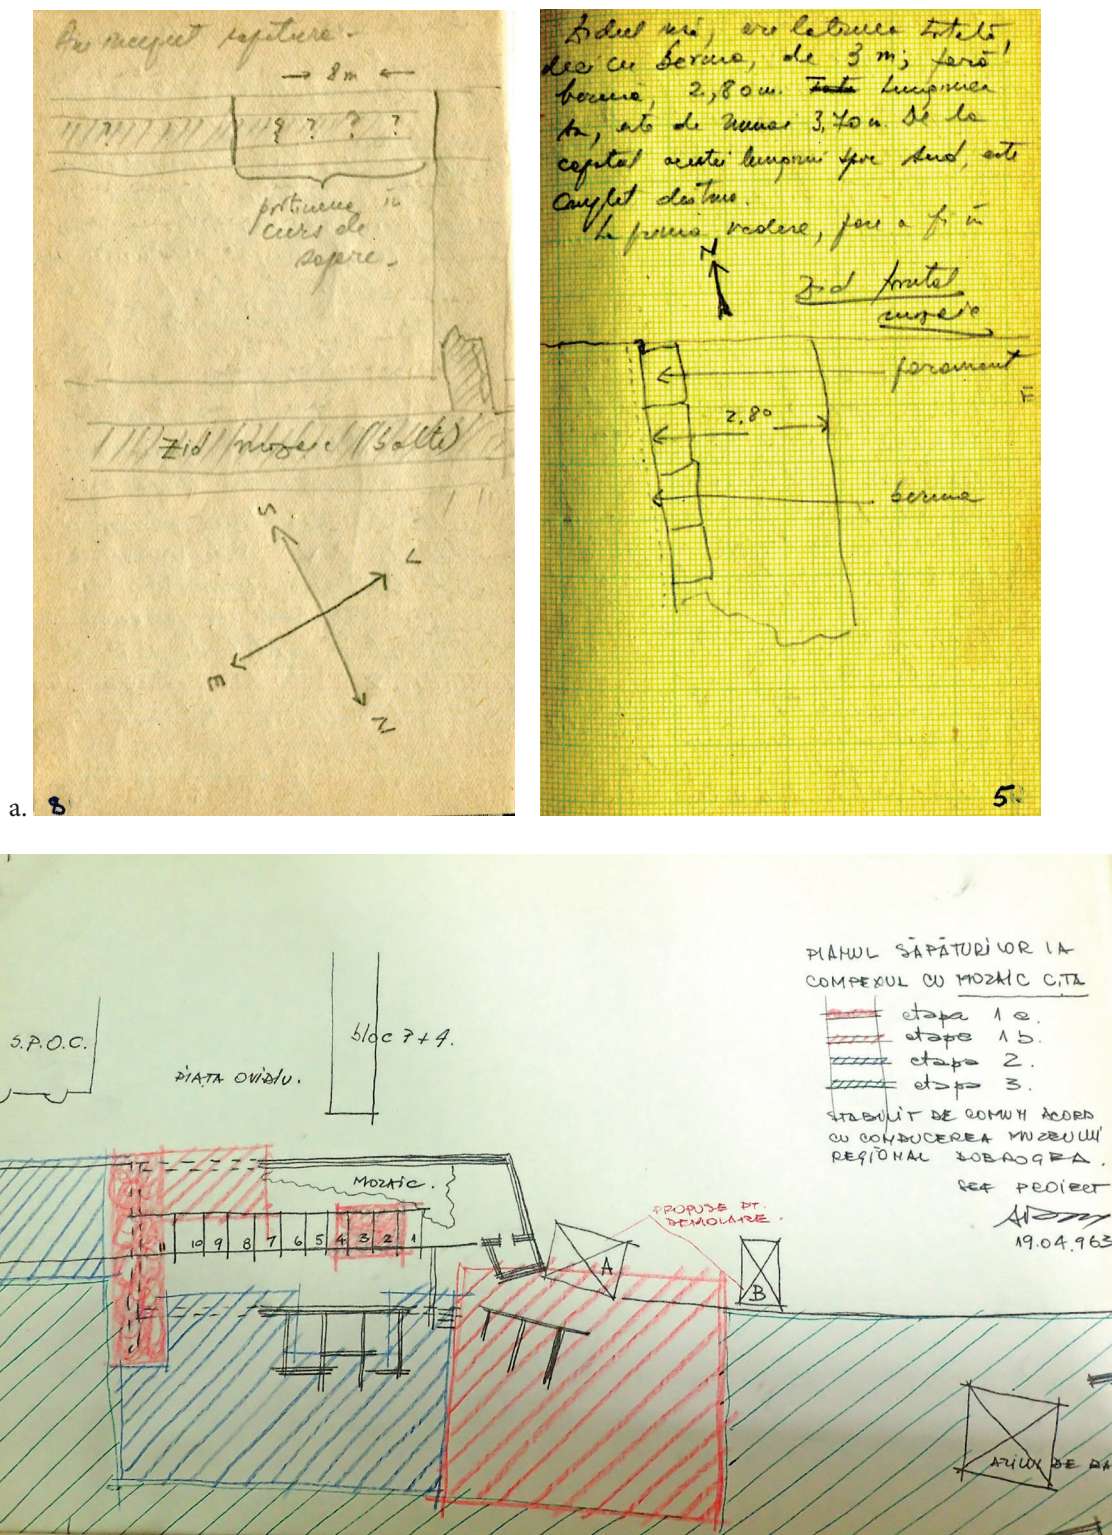 Au inceput sapaturi.
→ 8 m ←
? ? ? ? ?
portiunea in
curs de
sapare.
Zid mozaic (bolte)
S
V
E
N
a. 8
Zidul are latimea totală,
deci cu berma, de 3 m; fară
berma, 2,80 m. lungimea
sa, este de numai 3,70 m. De la
capatul acestei lungimi spre Sud, este
complet distrus.
La prima vedere, pare a fi un
Zid
mozaic
N
parament
2,80
berma
5
PLANUL SĂPĂTURILOR LA
COMPEXUL CU MOZAIC C,TA
etapa 1 a.
etapa 1 b.
etapa 2.
etapa 3.
STABILIT DE COMUN ACORD
CU CONDUCEREA MUZEULUI
REGIONAL DOBROGEA.
SEF PROIECT
19.04.963
S.P.O.C.
bloc 7+4.
PIAȚA OVIDIU.
MOZAIC.
PROPUSE PT.
DEMOLARE.
11 10 9 8 7 6 5 4 3 2 1
A
B
AZILUL DE BA